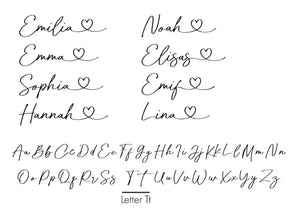 Emilia
Noah
Emma
Elisas
Sophia
Emif
Hannah
Lina
Aa Bb Cc Dd Ee Ff Gg Hh Ii Jj Kk Ll Mm Nn
Oo Pp Qq Rr Ss Tt Uu Vv Ww Xx Yy Zz
Letter Tt